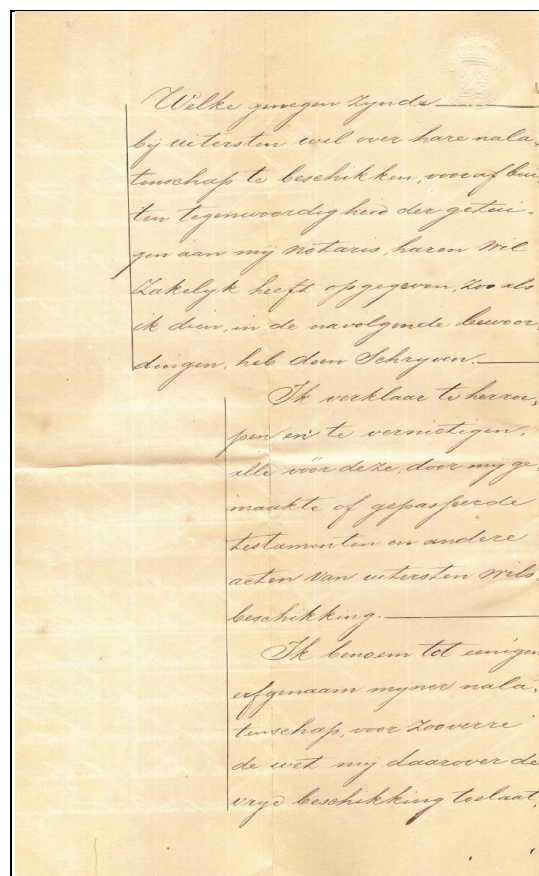 Welke genegen zijnde
bij uitersten wil over hare nala-
tenschap te beschikken, vooraf bui-
ten tegenwoordigheid der getui-
gen aan mij notaris, haren wil
zakelyk heeft opgegeven, zoo als
ik dien, in de navolgende bewoor-
dingen, heb doen Schryven.
Ik verklaar te herroe-
pen en te vernietigen,
alle vóór deze, door my ge-
maakte of gepasseerde
testamenten en andere
acten van uitersten wils-
beschikking.
Ik benoem tot eenigen
erfgenaam myner nala-
tenschap, voor zooverre
de wet my daarover de
vrye beschikking toelaat,